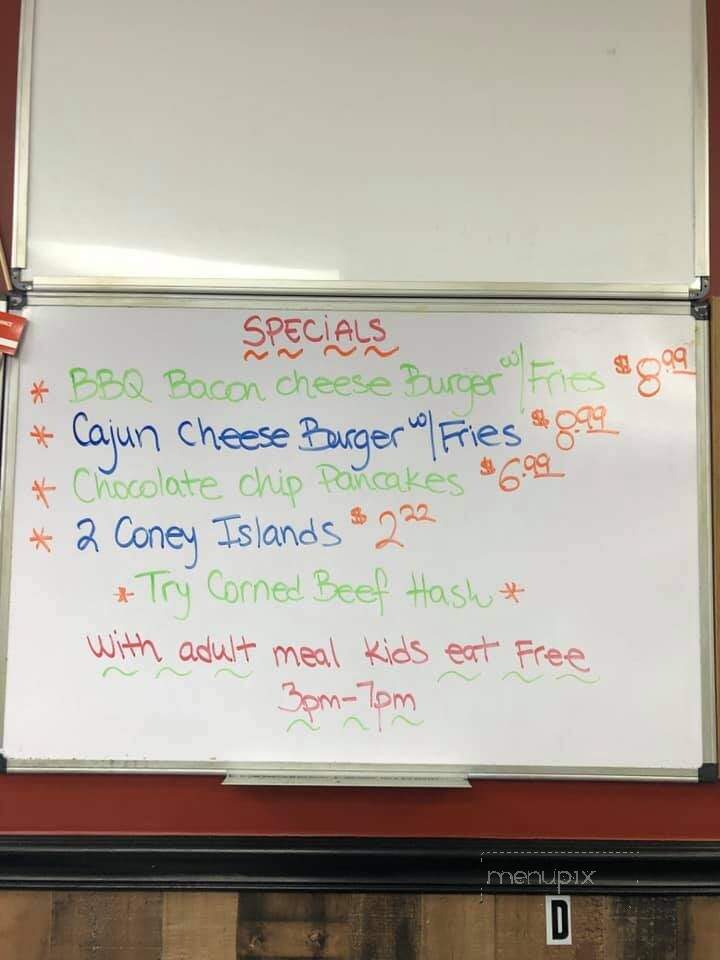 SPECiALS
* BBQ Bacon cheese Burger w/ Fries $8.99
* Cajun Cheese Burger w/ Fries $8.99
* Chocolate chip Pancakes $6.99
* 2 Coney Islands $2 22
* Try Corned Beef Hash *
With adult meal kids eat Free
3pm-7pm
menupix
D